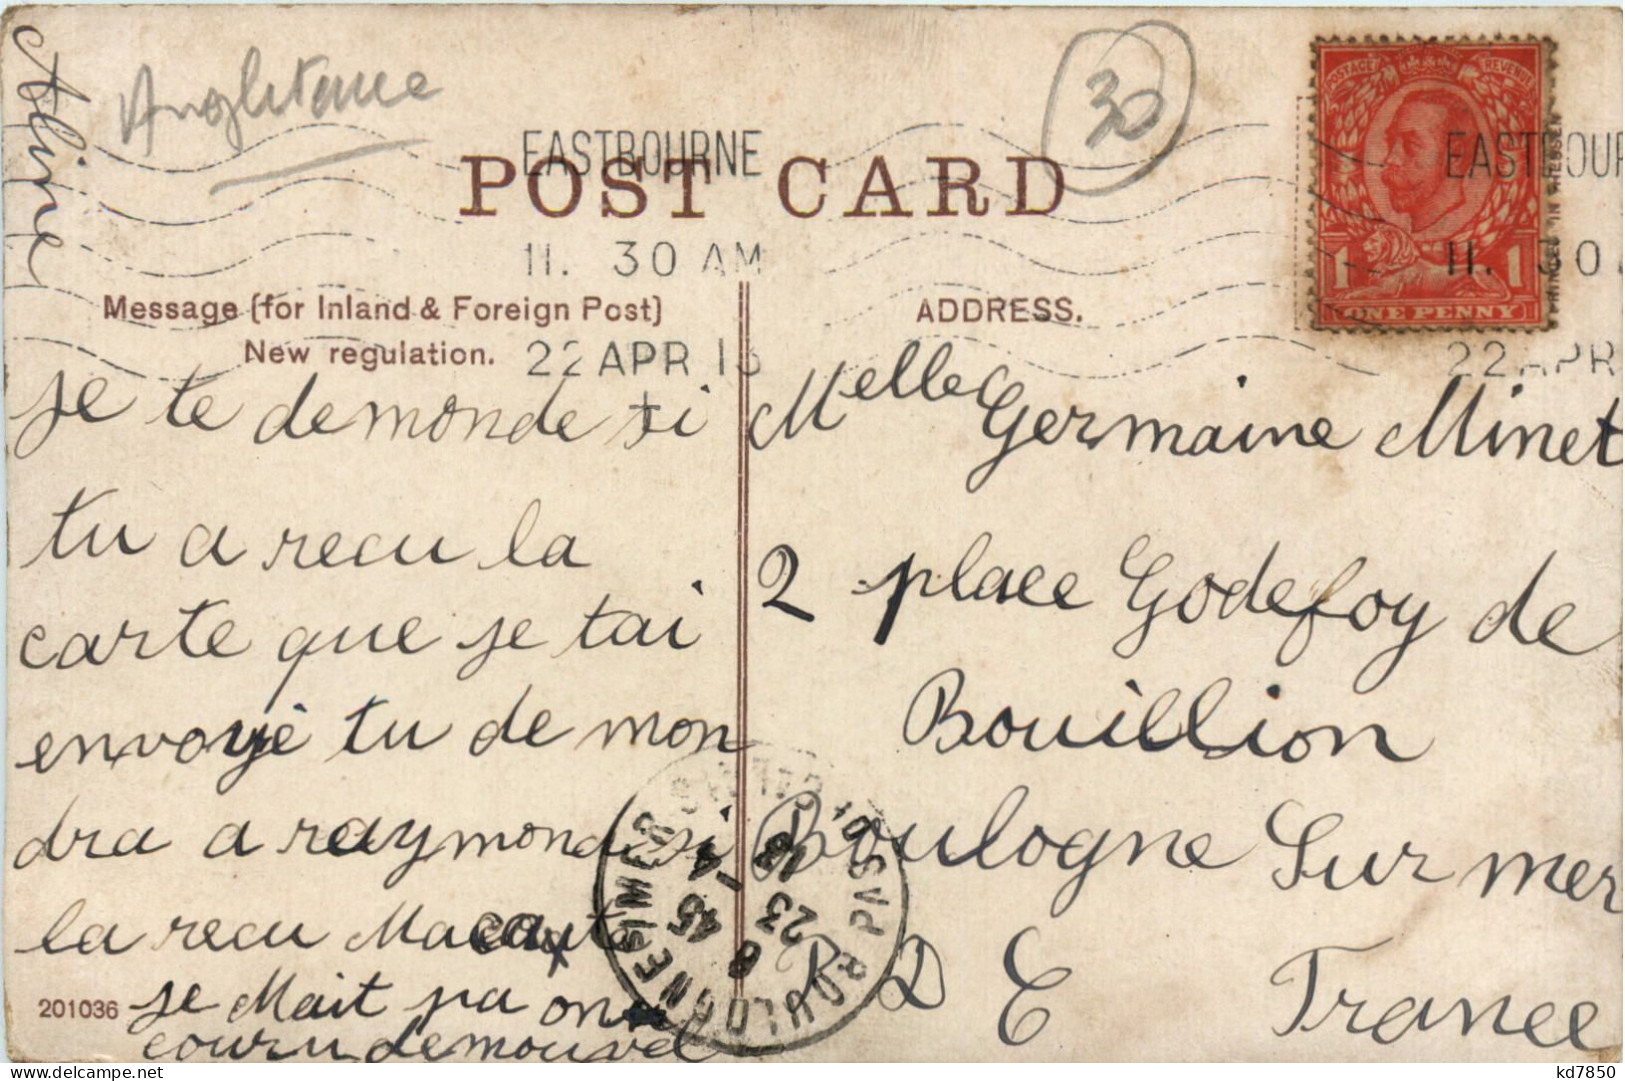 Aline
Angleterre
30
EASTBOURNE
POST CARD
11. 30 AM
22 APR 13
POSTAGE REVENUE
1 1
ONE PENNY
PRINTED IN HESSEN
EASTBOUR
11. 30
22 APR
Message (for Inland & Foreign Post)
New regulation.
ADDRESS.
je te demonde si
tu a recu la
carte que je tai
envoyé tu de mon
dra a raymond si
la recu Ma carte
je Mait pa on
couru de mouvel
201036
Melle Germaine Minet
2 place Godefoy de
Bouillion
Boulogne Sur mer
P D C France
BOULOGNE S/MER PAS-D.-CALAIS
14 45
23 - 4
13
kd7850